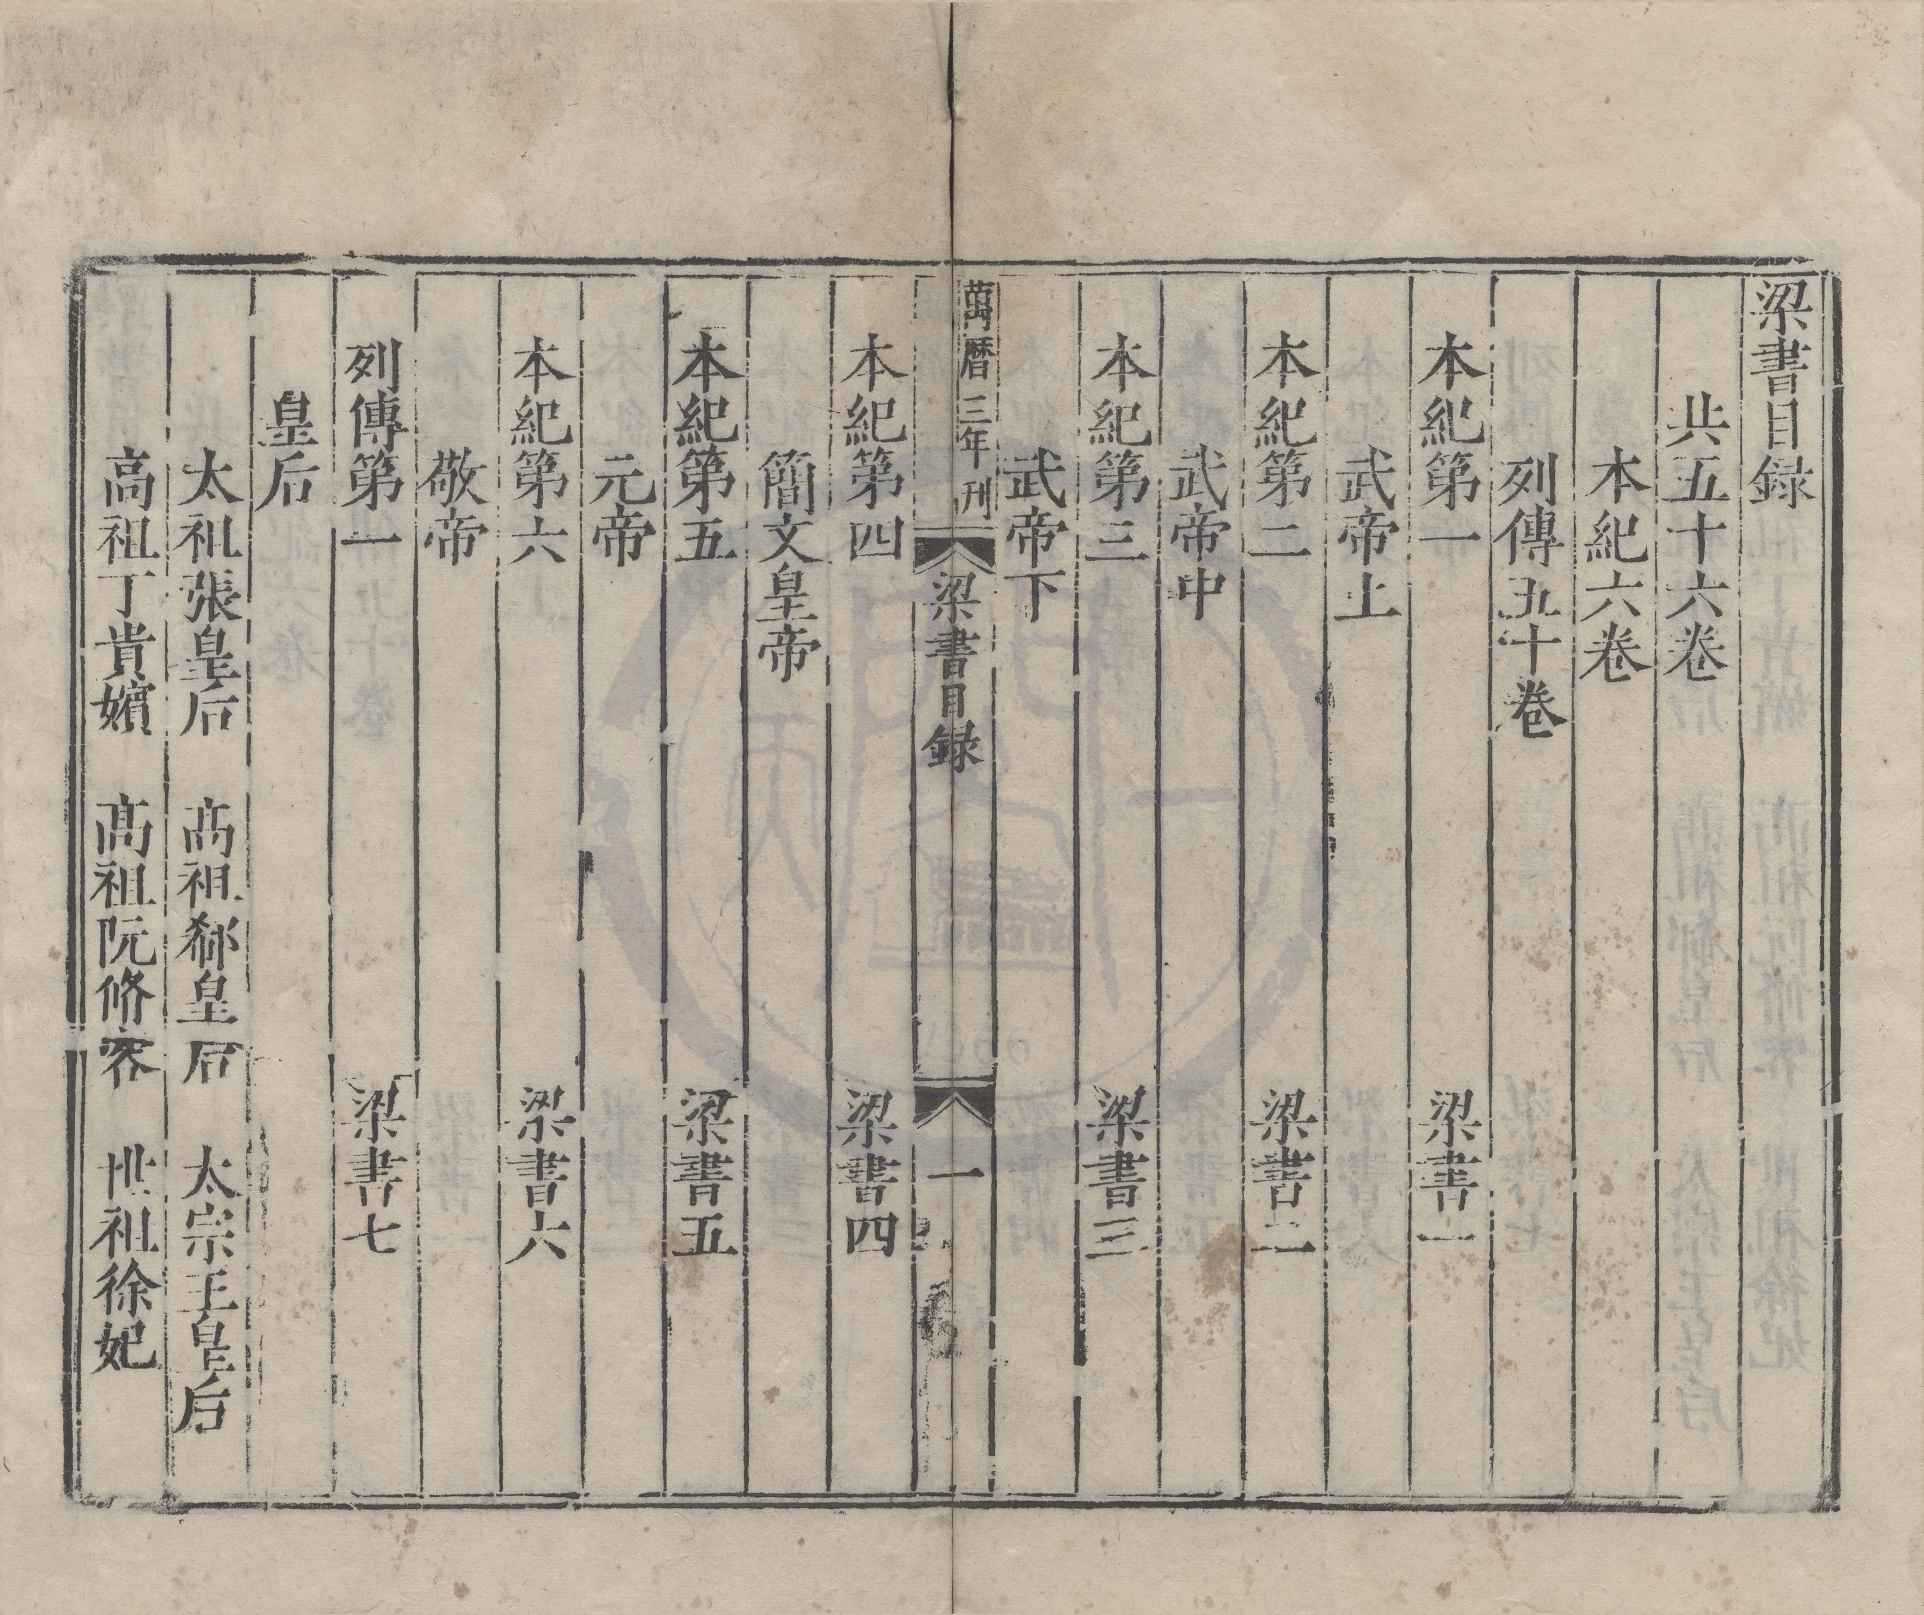 梁書目録
共五十六卷
本紀六卷
列傳五十卷
本紀第一 梁書一
武帝上
本紀第二 梁書二
武帝中
本紀第三 梁書三
武帝下
萬曆三年刊 梁書目録 一
本紀第四 梁書四
簡文皇帝
本紀第五 梁書五
元帝
本紀第六 梁書六
敬帝
列傳第一 梁書七
皇后
太祖張皇后 高祖郗皇后 太宗王皇后
高祖丁貴嬪 高祖阮脩容 世祖徐妃